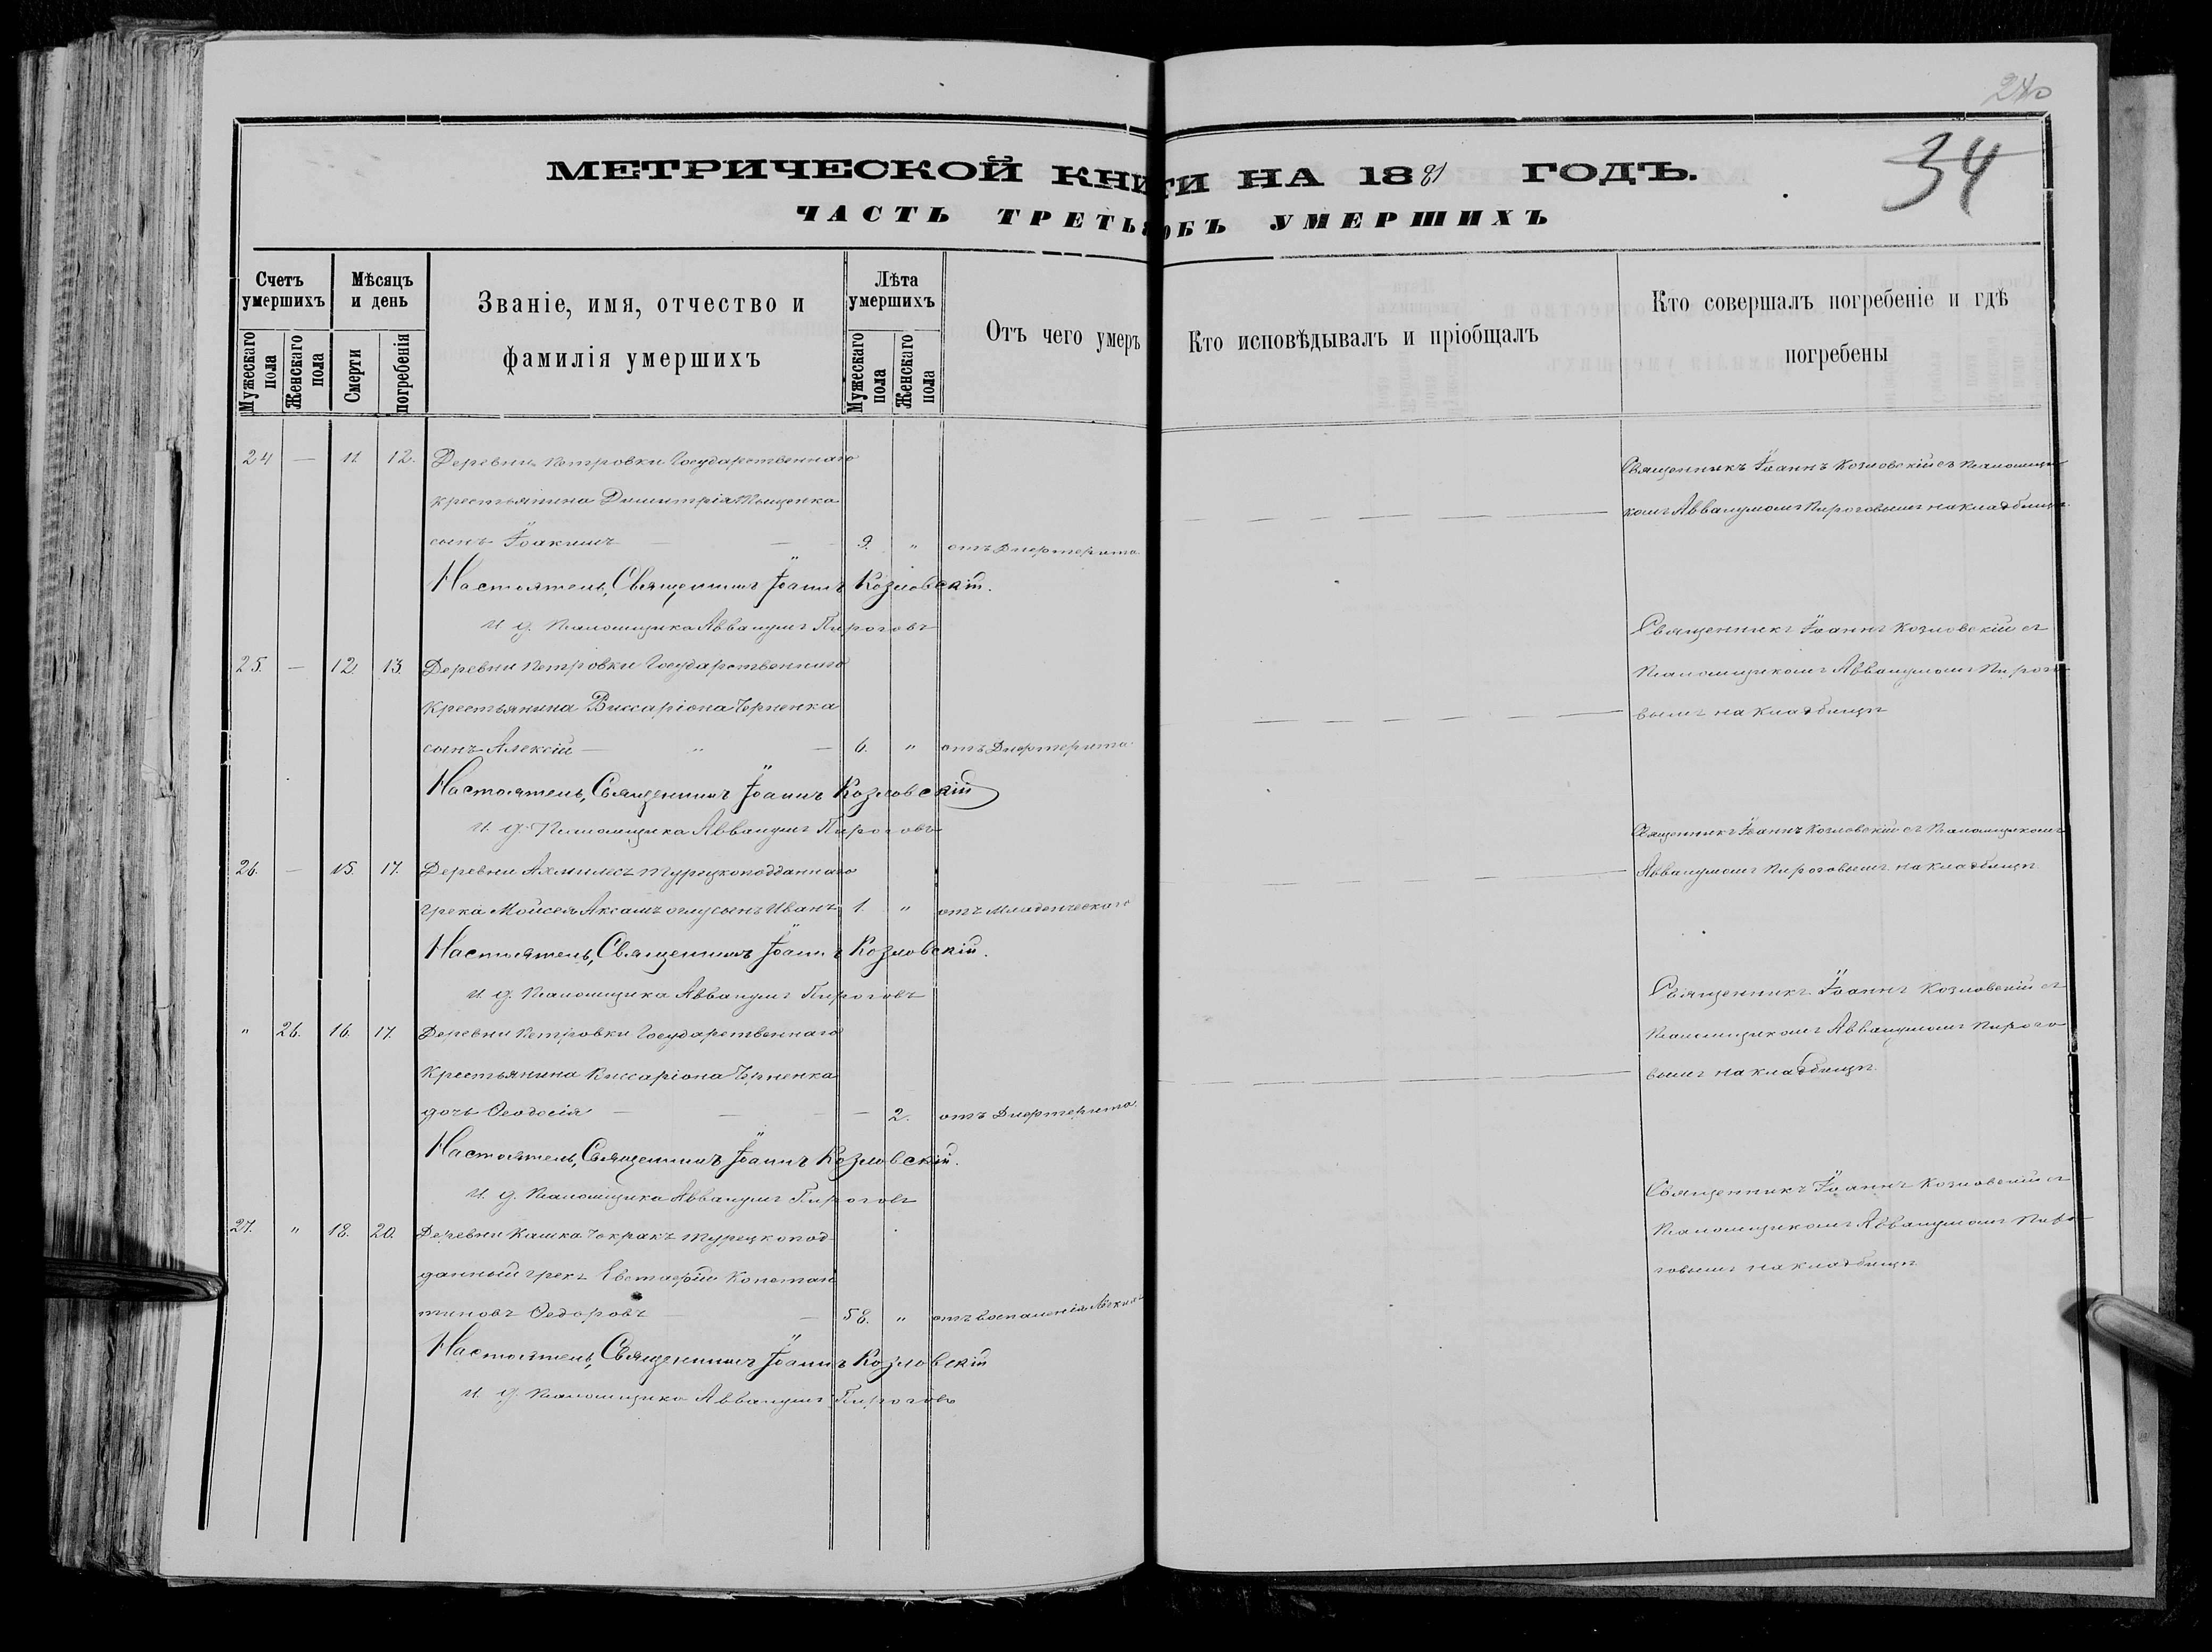 240
34
МЕТРИЧЕСКОЙ КНИГИ НА 1881 ГОДЪ.
ЧАСТЬ ТРЕТЬЯ ОБЪ УМЕРШИХЪ
Счетъ умершихъ
Мужескаго пола
Женскаго пола
Мѣсяцъ и день
Смерти
погребенія
Званіе, имя, отчество и
фамилія умершихъ
Лѣта умершихъ
Мужескаго пола
Женскаго пола
Отъ чего умеръ
Кто исповѣдывалъ и пріобщалъ
Кто совершалъ погребеніе и гдѣ
погребены
24 — 11. 12. Деревни Петровки Государственнаго
крестьянина Димитрія
сынъ Іоакимъ — — 9. " отъ Дифтерита
Священникъ Іоаннъ Козловскій съ Псаломщи-
комъ Аввакумомъ Пироговымъ на кладбищѣ.
Настоятель, Священникъ Іоаннъ Козловскій.
И. д. Псаломщика Аввакумъ Пироговъ
25. — 12. 13. Деревни Петровки Государственнаго
крестьянина Виссаріона Черненка
сынъ Алексій — " — 6. " отъ Дифтерита
Священникъ Іоаннъ Козловскій съ
Псаломщикомъ Аввакумомъ Пирого-
вымъ на кладбищѣ
Настоятель, Священникъ Іоаннъ Козловскій
И. д. Псаломщика Аввакумъ Пироговъ
26. — 15. 17. Деревни Ахмилесъ турецкоподданнаго
грека Мойсея Аксамъ оглу сынъ Иванъ 1. " отъ младенческаго
Священникъ Іоаннъ Козловскій съ Псаломщикомъ
Аввакумомъ Пироговымъ на кладбищѣ
Настоятель, Священникъ Іоаннъ Козловскій.
И. д. Псаломщика Аввакумъ Пироговъ
" 26. 16. 17. Деревни Петровки Государственнаго
крестьянина Виссаріона Черненка
дочь Ѳеодосія — — — — 2. отъ Дифтерита.
Священникъ Іоаннъ Козловскій съ
Псаломщикомъ Аввакумомъ Пирого-
вымъ на кладбищѣ.
Настоятель, Священникъ Іоаннъ Козловскій.
И. д. Псаломщика Аввакумъ Пироговъ
27. " 18. 20. Деревни Кашка Чокракъ турецкопод-
данный грекъ Евстафій Констан-
тиновъ Ѳедоровъ — — 58. " отъ воспаленія легкихъ
Священникъ Іоаннъ Козловскій съ
Псаломщикомъ Аввакумомъ Пиро-
говымъ на кладбищѣ
Настоятель, Священникъ Іоаннъ Козловскій
И. д. Псаломщика Аввакумъ Пироговъ